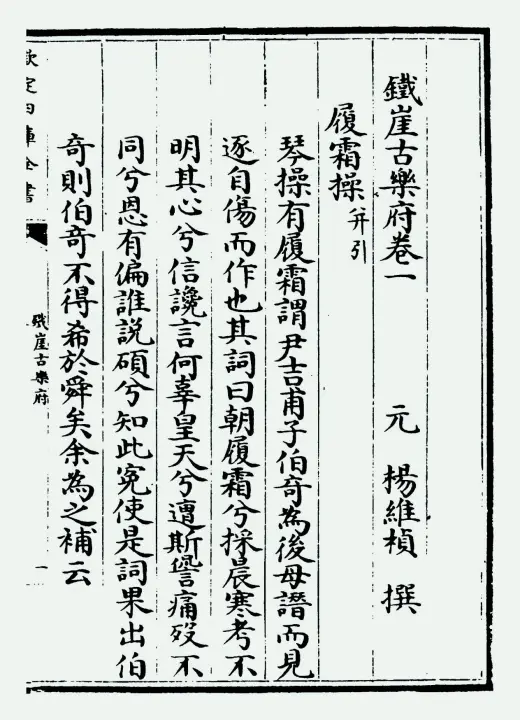 鐵崖古樂府卷一 元 楊維楨 撰
履霜操 并引
琴操有履霜謂尹吉甫子伯奇為後母譖而見
逐自傷而作也其詞曰朝履霜兮採晨寒考不
明其心兮信讒言何辜皇天兮遭斯諐痛歿不
同兮恩有偏誰説碩兮知此冤使是詞果出伯
奇則伯奇不得希於舜矣余為之補云
欽定四庫全書
鐵崖古樂府
一